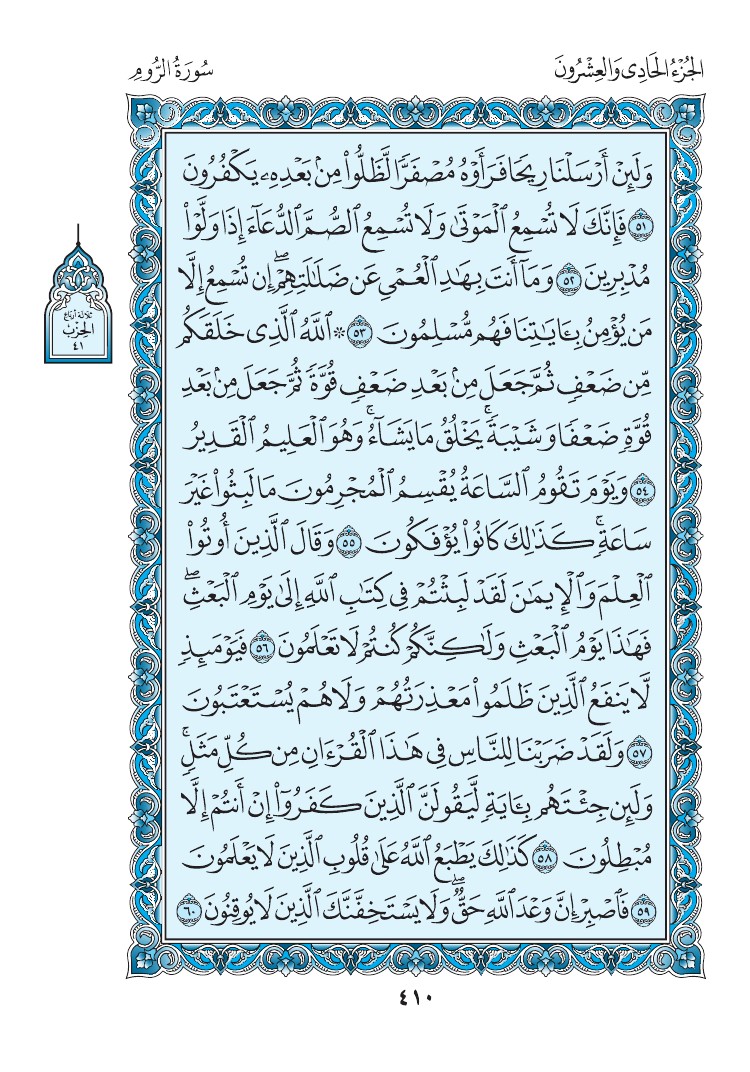 الجُزْءُ الحَادِى وَالعِشْرُونَ
سُورَةُ الرُّومِ
وَلَئِنۡ أَرۡسَلۡنَا رِيحٗا فَرَأَوۡهُ مُصۡفَرّٗا لَّظَلُّواْ مِنۢ بَعۡدِهِۦ يَكۡفُرُونَ
٥١ فَإِنَّكَ لَا تُسۡمِعُ ٱلۡمَوۡتَىٰ وَلَا تُسۡمِعُ ٱلصُّمَّ ٱلدُّعَآءَ إِذَا وَلَّوۡاْ
مُدۡبِرِينَ ٥٢ وَمَآ أَنتَ بِهَٰدِ ٱلۡعُمۡيِ عَن ضَلَٰلَتِهِمۡۖ إِن تُسۡمِعُ إِلَّا
مَن يُؤۡمِنُ بِـَٔايَٰتِنَا فَهُم مُّسۡلِمُونَ ٥٣ ۞ ٱللَّهُ ٱلَّذِي خَلَقَكُم
مِّن ضَعۡفٖ ثُمَّ جَعَلَ مِنۢ بَعۡدِ ضَعۡفٖ قُوَّةٗ ثُمَّ جَعَلَ مِنۢ بَعۡدِ
قُوَّةٖ ضَعۡفٗا وَشَيۡبَةٗۚ يَخۡلُقُ مَا يَشَآءُۚ وَهُوَ ٱلۡعَلِيمُ ٱلۡقَدِيرُ
٥٤ وَيَوۡمَ تَقُومُ ٱلسَّاعَةُ يُقۡسِمُ ٱلۡمُجۡرِمُونَ مَا لَبِثُواْ غَيۡرَ
سَاعَةٖۚ كَذَٰلِكَ كَانُواْ يُؤۡفَكُونَ ٥٥ وَقَالَ ٱلَّذِينَ أُوتُواْ
ٱلۡعِلۡمَ وَٱلۡإِيمَٰنَ لَقَدۡ لَبِثۡتُمۡ فِي كِتَٰبِ ٱللَّهِ إِلَىٰ يَوۡمِ ٱلۡبَعۡثِۖ
فَهَٰذَا يَوۡمُ ٱلۡبَعۡثِ وَلَٰكِنَّكُمۡ كُنتُمۡ لَا تَعۡلَمُونَ ٥٦ فَيَوۡمَئِذٖ
لَّا يَنفَعُ ٱلَّذِينَ ظَلَمُواْ مَعۡذِرَتُهُمۡ وَلَا هُمۡ يُسۡتَعۡتَبُونَ
٥٧ وَلَقَدۡ ضَرَبۡنَا لِلنَّاسِ فِي هَٰذَا ٱلۡقُرۡءَانِ مِن كُلِّ مَثَلٖۚ
وَلَئِن جِئۡتَهُم بِـَٔايَةٖ لَّيَقُولَنَّ ٱلَّذِينَ كَفَرُوٓاْ إِنۡ أَنتُمۡ إِلَّا
مُبۡطِلُونَ ٥٨ كَذَٰلِكَ يَطۡبَعُ ٱللَّهُ عَلَىٰ قُلُوبِ ٱلَّذِينَ لَا يَعۡلَمُونَ
٥٩ فَٱصۡبِرۡ إِنَّ وَعۡدَ ٱللَّهِ حَقّٞۖ وَلَا يَسۡتَخِفَّنَّكَ ٱلَّذِينَ لَا يُوقِنُونَ ٦٠
ثلاثة أرباع
الحِزْب
٤١
٤١٠